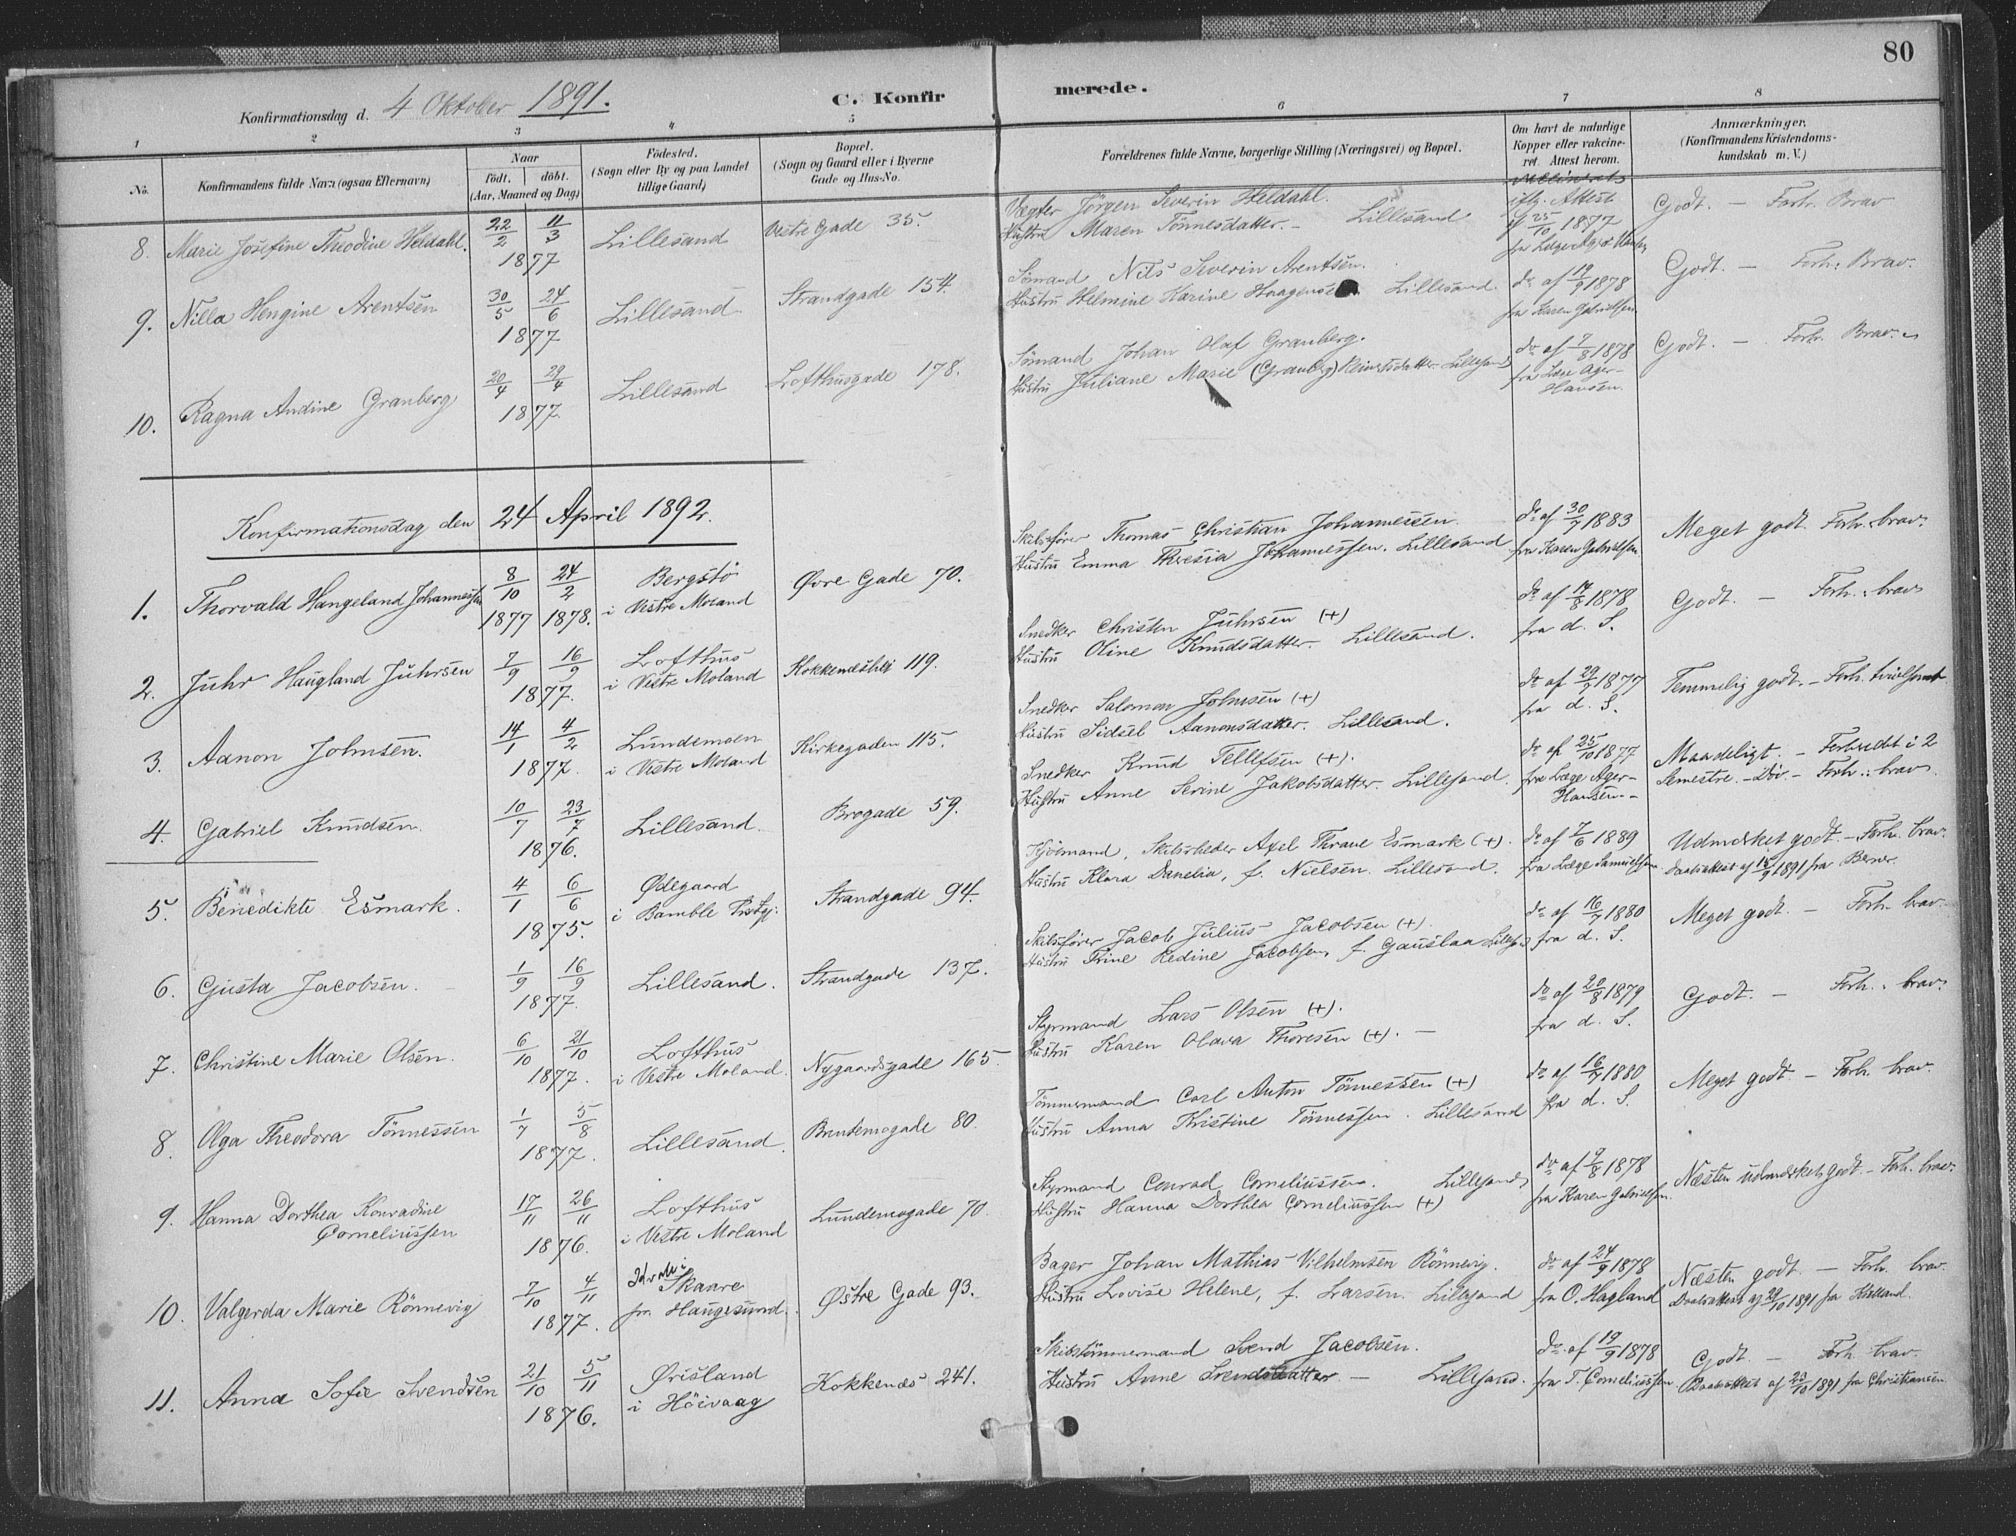 80
Konfirmationsdag d. 4 Oktober 1891.
C. Konfirmerede.
1 2 3 4 5 6 7 8
No.
Konfirmandens fulde Navn (ogsaa Efternavn)
Naar
født. døbt.
(Aar, Maaned og Dag)
Fødested.
(Sogn eller By og paa Landet
tillige Gaard)
Bopæl.
(Sogn og Gaard eller i Byerne
Gade og Hus-No.
Forældrenes fulde Navne, borgerlige Stilling (Næringsvei) og Bopæl.
Om havt de naturlige
Kopper eller vakcine-
ret. Attest herom.
Anmærkninger.
(Konfirmandens Kristendoms-
kundskab m. V.)
8. Marie Josefine Theodine Heldahl. 22/2 11/3 1877 Lillesand Vestre Gade 35.
Vægter Jörgen Severin Heldahl.
Hustru Maren Tönnesdatter. - Lillesand
iflg. Attest
af 25/10 1877
fra Læge Ager Hansen
Godt. - Forh. Brav
9. Nilla Hengine Arentsen 30/5 24/6 1877 Lillesand Strandgade 154.
Sömand Nils Severin Arentsen.
Hustru Helmine Karine Lillesand.
do af 19/9 1878
fra Karen Gabrielsen.
Godt. - Forh. Brav.
10. Ragna Andine Granberg 20/4 29/4 1877 Lillesand Lofthusgade 178.
Sömand Johan Olaf Granberg.
Hustru Juliane Marie (Granberg) Lillesand
do af 7/8 1878
fra Læge Ager-
Hansen.
Godt. - Forh. Brav.
Konfirmationsdag den 24 April 1892.
1. Thorvald Hangeland Johannessen 8/10 1877 24/2 1878. Bergstö
i Vestre Moland Øvre Gade 70.
Skibsfører Thomas Christian Johannessen.
Hustru Emma Theresia Johannessen. Lillesand
do af 30/7 1883
fra Karen Gabrielsen
Meget godt. Forh. brav.
2. Juhr Haugland Juhrsen 7/9 16/9 1877. Lofthus
i Vestre Moland Kokkenæshei 119.
Snedker Christen Juhrsen (+)
Hustru Oline Knudsdatter. Lillesand.
do af 14/8 1878
fra d. S.
Godt. - Forh. brav
3. Aanon Johnsen. 14/1 4/2 1877. Lundemoen
i Vestre Moland Kirkegaden 115.
Snedker Salomon Johnsen (+)
Hustru Sidsel Aanonsdatter. Lillesand.
do af 29/7 1877
fra d. S.
Temmelig godt. - Forh. tvivlsomt
4. Gabriel Knudsen. 10/7 23/7 1876. Lillesand. Brogade 59.
Snedker Knud Tellefsen (+).
Hustru Anne Serine Jakobsdatter. Lillesand.
do af 25/10 1877
fra Læge Ager-
Hansen. -
Maadeligt - Forberedt i 2
Semestre. - Döv - Forh. brav
5. Benedikte Esmark. 4/1 6/6 1875. Ødegaard
i Bamble Prstgj: Strandgade 94.
Kjöbmand, Skibsrheder Axel Thrane Esmark (+).
Hustru Klara Danelia, f. Nielsen. Lillesand.
do af 7/6 1889
fra Læge Samuelsen
Udmerket godt. - Forh. brav.
6. Gusta Jacobsen. 1/9 16/9 1877. Lillesand. Strandgade 137.
Skibsfører Jacob Julius Jacobsen (+).
Hustru Trine Redine Jacobsen, f. Gauslaa
do af 16/7 1880
fra d. S.
Meget godt. - Forh. brav.
7. Christine Marie Olsen. 6/10 21/10 1877. Lofthus
i Vestre Moland. Nygaardsgade 165
Styrmand Lars Olsen (+).
Hustru Karen Olava Thoresen (+). -
do af 20/8 1879
fra d. S.
Godt. - Forh. brav.
8. Olga Theodora Tönnessen 1/7 5/8 1877. Lillesand. Brutemogade 80.
Tömmermand Carl Anton Tönnessen (+)
Hustru Anna Kristine Tönnessen. Lillesand
do af 16/7 1880
fra d. S.
Meget godt. - Forh. brav.
9. Hanna Dorthea Konradine
Corneliussen 17/11 26/11 1876. Lofthus
i Vestre Moland Lundemogade 70
Styrmand Conrad Corneliussen. Lillesand
Hustru Hanna Dorthea Corneliussen (+)
do af 9/8 1878
fra Karen Gabrielsen.
Næsten udmærket godt. - Forh. brav.
10. Valgerda Marie Rönnevig 7/10 4/11 1877. Skaare
pr. Haugesund. Østre Gade 93.
Bager Johan Mathias Vilhelmsen Rönnevig.
Hustru Lovise Helene, f. Larsen. Lillesand
do af 24/9 1878
fra O. Hagland
Næsten godt. - Forh. brav.
Daabsattest af 29/10 1891 fra Kielland.
11. Anna Sofie Svendsen 21/10 5/11 1876. Ørisland
i Höivaag Kokkenæs 241.
Skibstömmermand Svend Jacobsen.
Hustru Anne Svendsdatter - Lillesand.
do. af 19/9 1878
fra T. Corneliussen
Godt - Forh brav.
Daabsattest af 23/10 1891 fra Christiansen